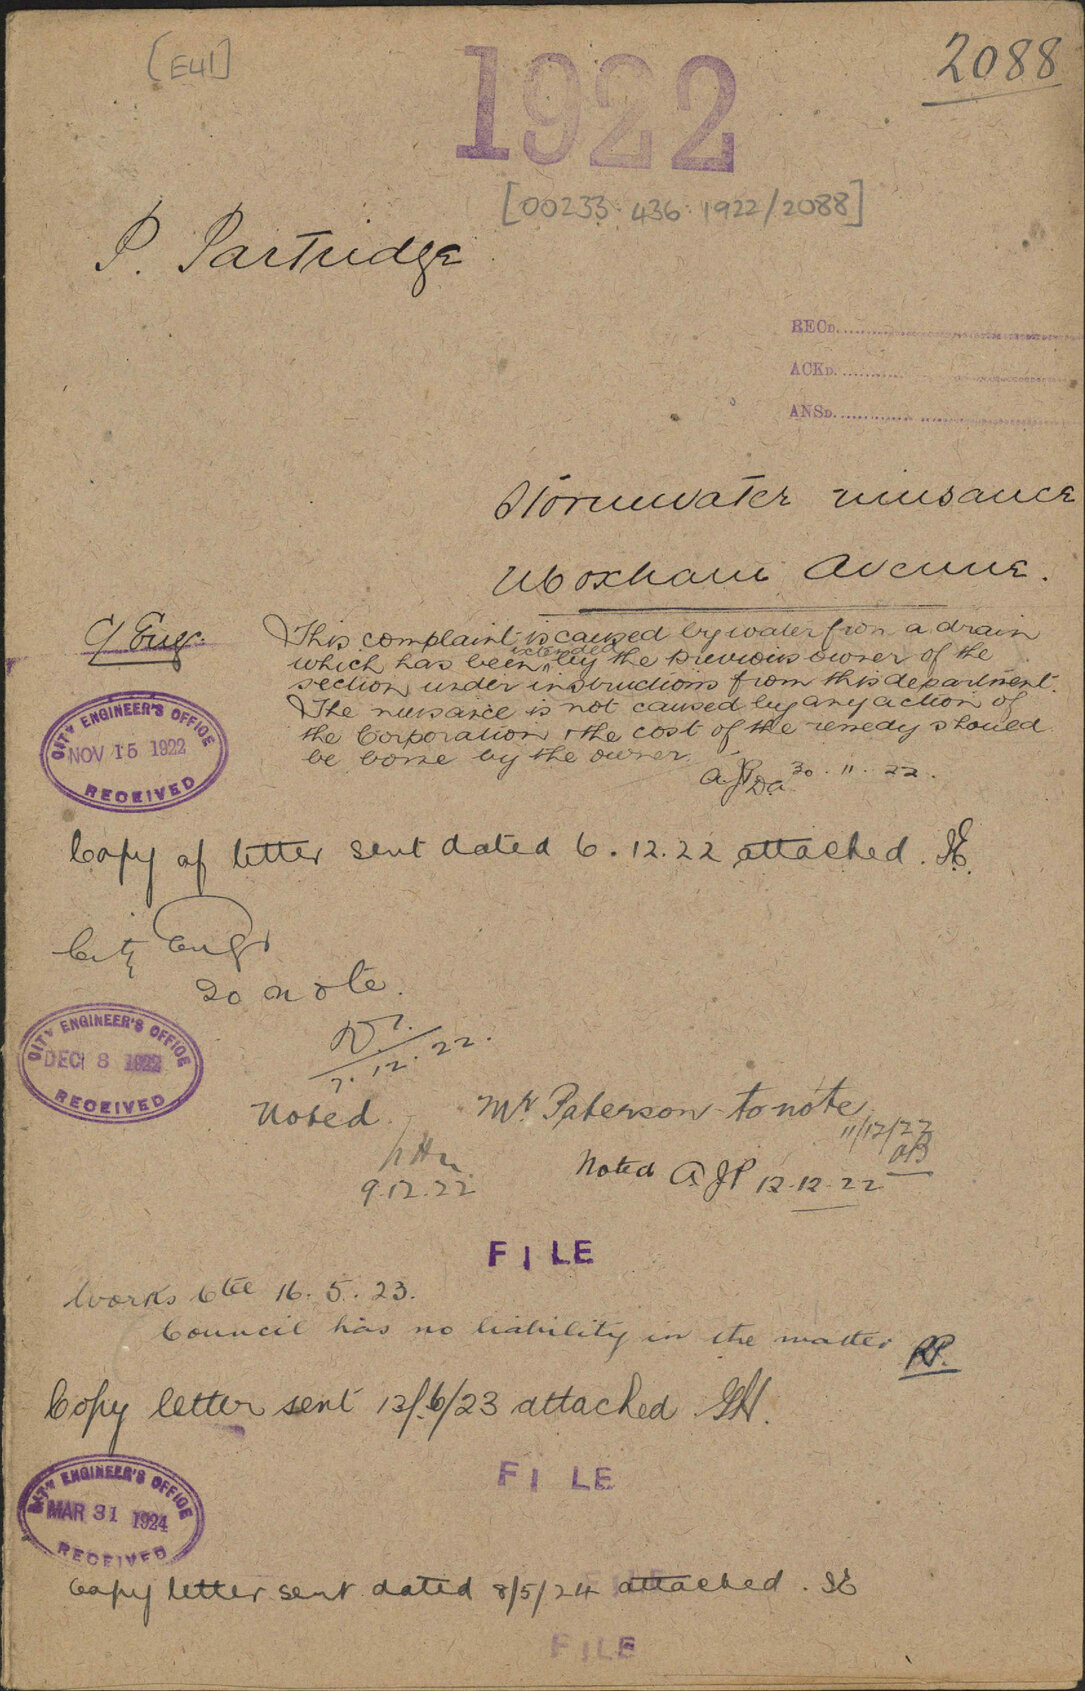 [E41]
1922
2088
[00233.436.1922/2088]
P. Partridge
RECD.
ACKD.
ANSD.
Stormwater nuisance
Moxham Avenue.
C/ Engr.
This complaint is caused by water from a drain
which has been extended by the previous owner of the
section, under instructions from this department.
The nuisance is not caused by any action of
the Corporation & the cost of the remedy should
be borne by the owner.
AJP 30.11.22.
CITY ENGINEER'S OFFICE
NOV 15 1922
RECEIVED
Copy of letter sent dated 6.12.22 attached.
City Engr
To note.
7.12.22.
CITY ENGINEER'S OFFICE
DEC 8 1922
RECEIVED
Noted
9.12.22
Mr Paterson to note
11/12/22
Noted AJP 12.12.22
FILE
Works Ctee 16.5.23.
Council has no liability in the matter
Copy letter sent 12/6/23 attached
FILE
CITY ENGINEER'S OFFICE
MAR 31 1924
RECEIVED
FILE
Copy letter sent dated 8/5/24 attached.
FILE